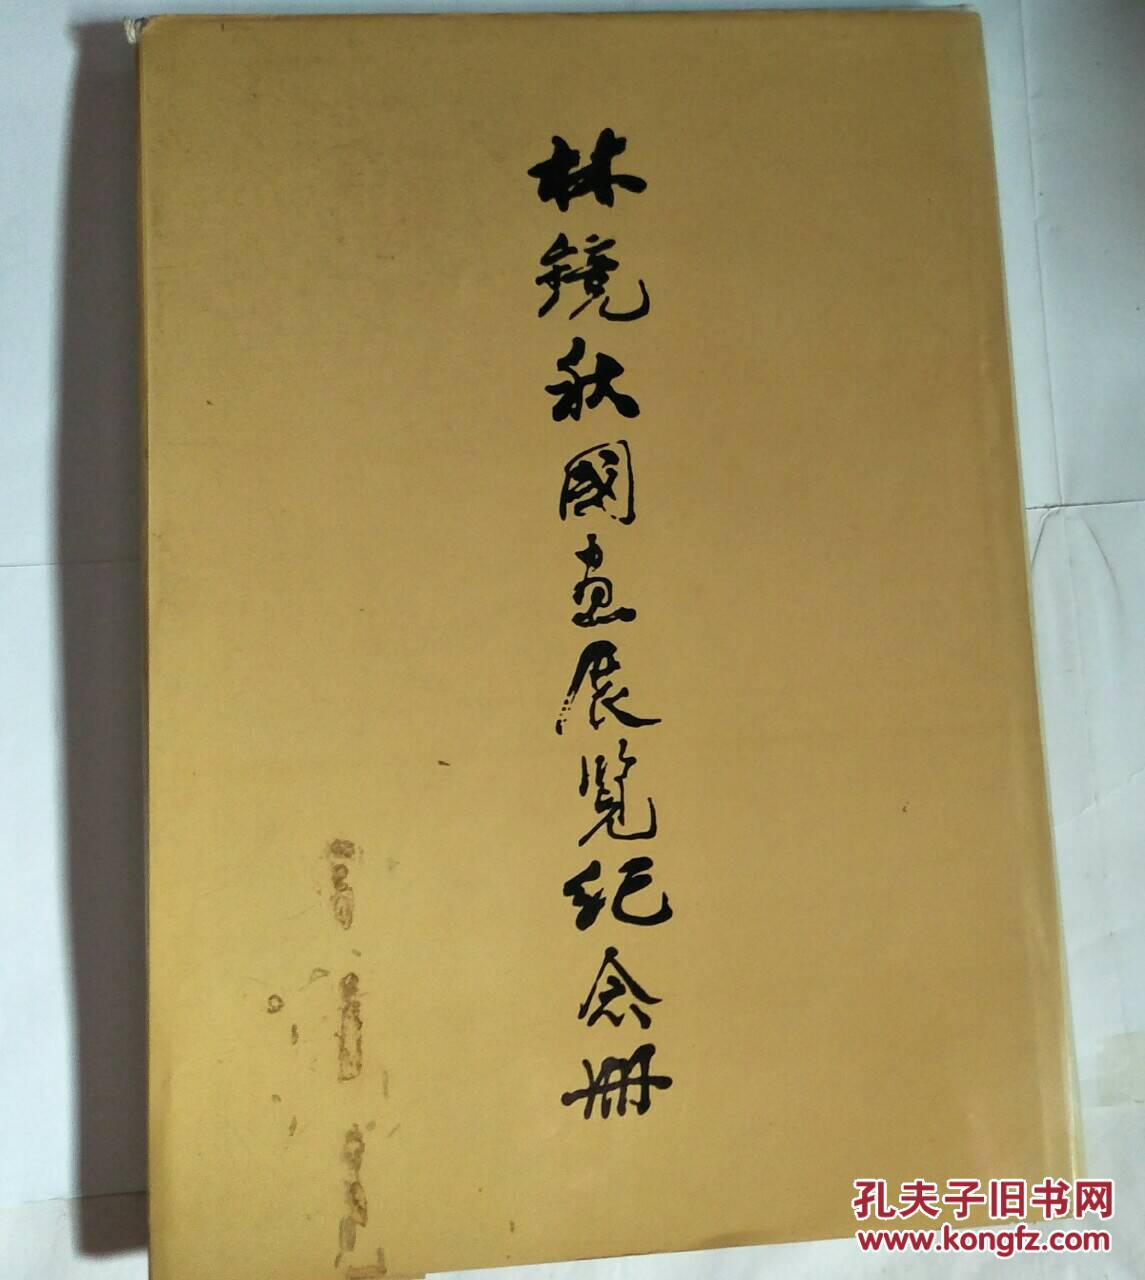 林镜秋國画展览纪念册
孔夫子旧书网
www.kongfz.com